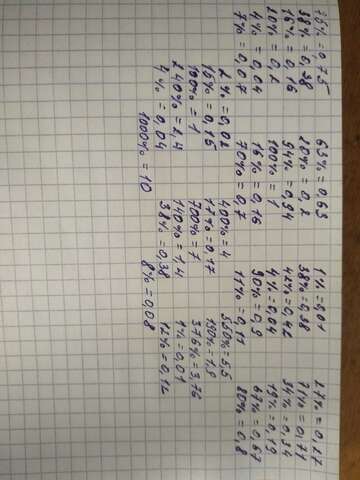 75% = 0,75 65% = 0,65 1% = 0,01 27% = 0,27
38% = 0,38 20% = 0,2 38% = 0,38 71% = 0,71
16% = 0,16 94% = 0,94 42% = 0,42 34% = 0,34
20% = 0,2 100% = 1 4% = 0,04 19% = 0,19
4% = 0,04 16% = 0,16 90% = 0,9 67% = 0,67
7% = 0,07 70% = 0,7 11% = 0,11 80% = 0,8
2% = 0,02 400% = 4 550% = 5,5
15% = 0,15 17% = 0,17 190% = 1,9
100% = 1 700% = 7 376% = 3,76
240% = 2,4 140% = 1,4 1% = 0,01
4% = 0,04 38% = 0,38 12% = 0,12
1000% = 10 8% = 0,08